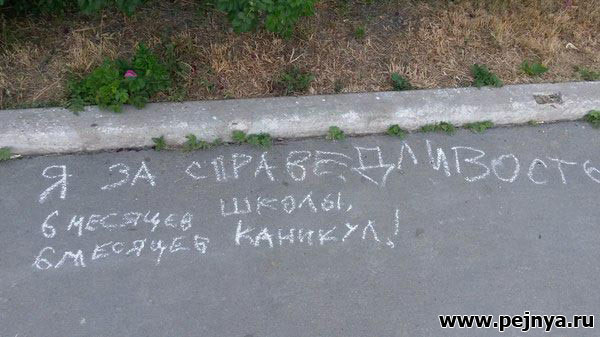 Я ЗА СПРАВЕДЛИВОСТЬ
6 МЕСЯЦЕВ ШКОЛЫ,
6 МЕСЯЦЕВ КАНИКУЛ!
www.pejnya.ru